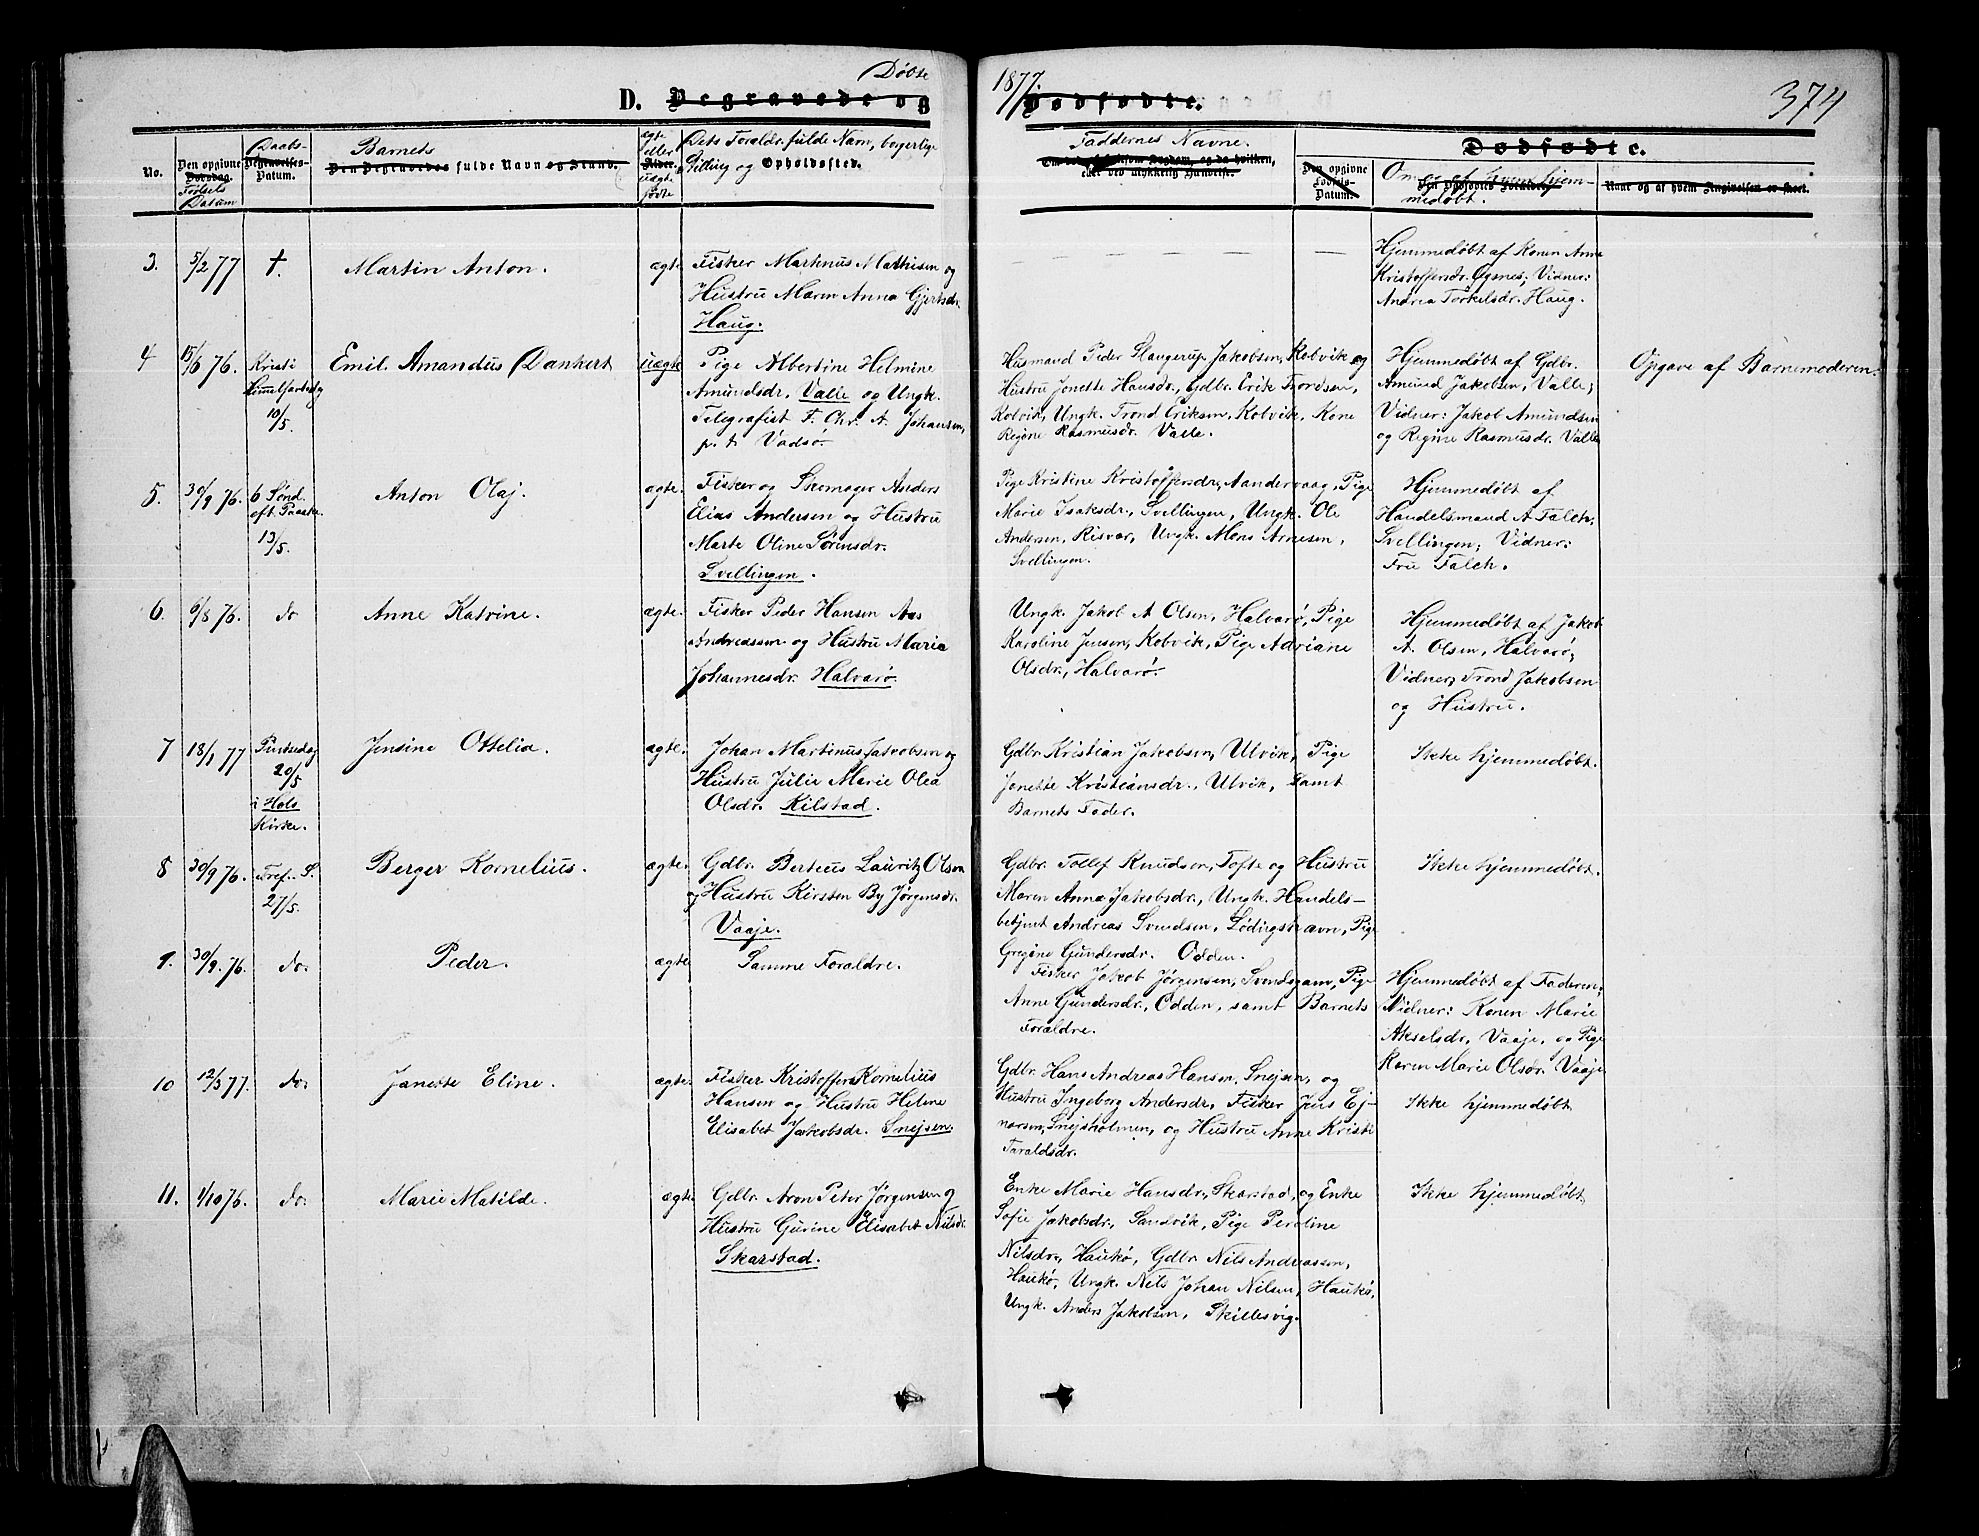 Døbte
D. Begravede og
1877
Dødfødte.
374
No.
Den opgivne Dødsdag.
Fødsels Datum
Daabs-
Begravelses-Datum.
Barnets
Den Begravedes fulde Navn og Stand.
ægte eller uægte fødte
Alder.
Dets Foraldr. fulde Navn, borgerlige
Stilling og Opholdssted.
Faddernes Navne.
Dødfødte.
Den opgivne Fødsels-Datum.
Om og af hvem hjem-
medøbt.
Naar og af hvem Angivelsen er skeet.
3.
5/2 77
†.
Martin Anton.
ægte
Fisker Martinus Mathisen og
Hustru Maren Anna Gjertsdr.
Haug.
Hjemmedøbt af Konen Anne
Kristoffersdr. Øgsnes; Vidner:
Andrea Torkelsdr. Haug.
4
15/6 76.
Kristi
Himmelfartsdg
10/5.
Emil Amandus Dankert
uægte
Pige Albertine Helmine
Amundsdr, Valle og Ungk.
Telegrafist F. Chr. A. Johansen,
p. t. Vadsø.
Husmand Peder Slangerup Jakobsen, Kobvik og
Hustru Jonette Hansdr, Gdbr. Erik Trondsen,
Kobvik, Ungk. Trond Eriksen, Kobvik, Kone
Regine Rasmusdr. Valle.
Hjemmedøbt af Gdbr.
Amund Jakobsen, Valle;
Vidner: Jakob Amundsen
og Regine Rasmusdr. Valle
Opgave af Barnemoderen.
5.
30/9 76.
6 Sønd.
eft. Paaske
13/5.
Anton Olaj.
ægte.
Fisker og Skomager Anders
Elias Andersen og Hustru
Marte Oline Sørensdr.
Svellingen.
Pige Kristine Kristoffersdr, Aandervaag, Pige
Marie Isaksdr., Svellingen, Ungk. Ole
Andersen, Risvær, Ungk. Mons Arnesen,
Svellingen.
Hjemmedøbt af
Handelsmand A Falch,
Svellingen; Vidner:
Fru Falch.
6.
6/8 76.
do
Anne Katrine.
ægte.
Fisker Peder Hansen Aas
Andreassen og Hustru Maria
Johannesdr. Halvarø.
Ungk. Jakob A Olsen, Halvarø, Pige
Karoline Jensen, Kobvik, Pige Adriane
Olsdr., Halvarø.
Hjemmedøbt af Jakob
A. Olsen, Halvarø;
Vidner, Trond Jakobsen
og Hustru.
7
18/1 77
Pintsedag
20/5
i Hols
Kirke.
Jensine Ottelia.
ægte.
Johan Martinus Jakobsen og
Hustru Julie Marie Olea
Olsdr. Kilstad.
Gdbr. Kristian Jakobsen, Ulvik, Pige
Jonette Kristiansdr., Ulvik, samt
Barnets Fader.
Ikke hjemmedøbt.
8
30/9 76.
Tref. S.
27/5.
Berger Kornelius.
ægte.
Gdbr. Berteus Lauritz Olsen
og Hustru Kirsten By Jørgensdr.
Vaaje.
Gdbr. Tollef Knudsen, Tofte og Hustru
Maren Anna Jakobsdr, Ungk. Handels-
betjent Andreas Svendsen, Lødingshavn, Pige
Gregine Gundersdr. Odden.
Ikke hjemmedøbt.
9.
30/9. 76.
do.
Peder.
ægte
Samme Foraldre.
Fisker Jakob Jørgensen, Svendsgam, Pige
Anne Gundersdr, Odden, samt Barnets
Foraldre.
Hjemmedøbt af Faderen;
Vidner: Konen Marie
Akselsdr, Vaaje, og Pige
Karen Marie Olsdr. Vaaje
10
12/3 77.
do.
Janette Eline.
ægte.
Fisker Kristoffer Kornelius
Hansen og Hustru Heline
Elisabet Jakobsdr. Snejsen.
Gdbr. Hans Andreas Hansen, Snejsen, og
Hustru Ingeborg Andersdr, Fisker Jens Ej-
narsen, Snejsholmen, og Hustru Anne Kristi
Taraldsdr.
Ikke hjemmedøbt
11.
1/10 76.
do.
Marie Matilde.
ægte.
Gdbr. Aron Peter Jørgensen og
Hustru Gurine Elisabet Nilsdr.
Skarstad.
Enke Marie Hansdr, Skarstad, og Enke
Sofie Jakobsdr, Sandvik, Pige Peroline
Nilsdr, Haukø, Gdbr. Nils Andreassen,
Haukø, Ungk. Nils Johan Nilsen, Haukø,
Ungk. Anders Jakobsen, Skillesvig.
Ikke hjemmedøbt